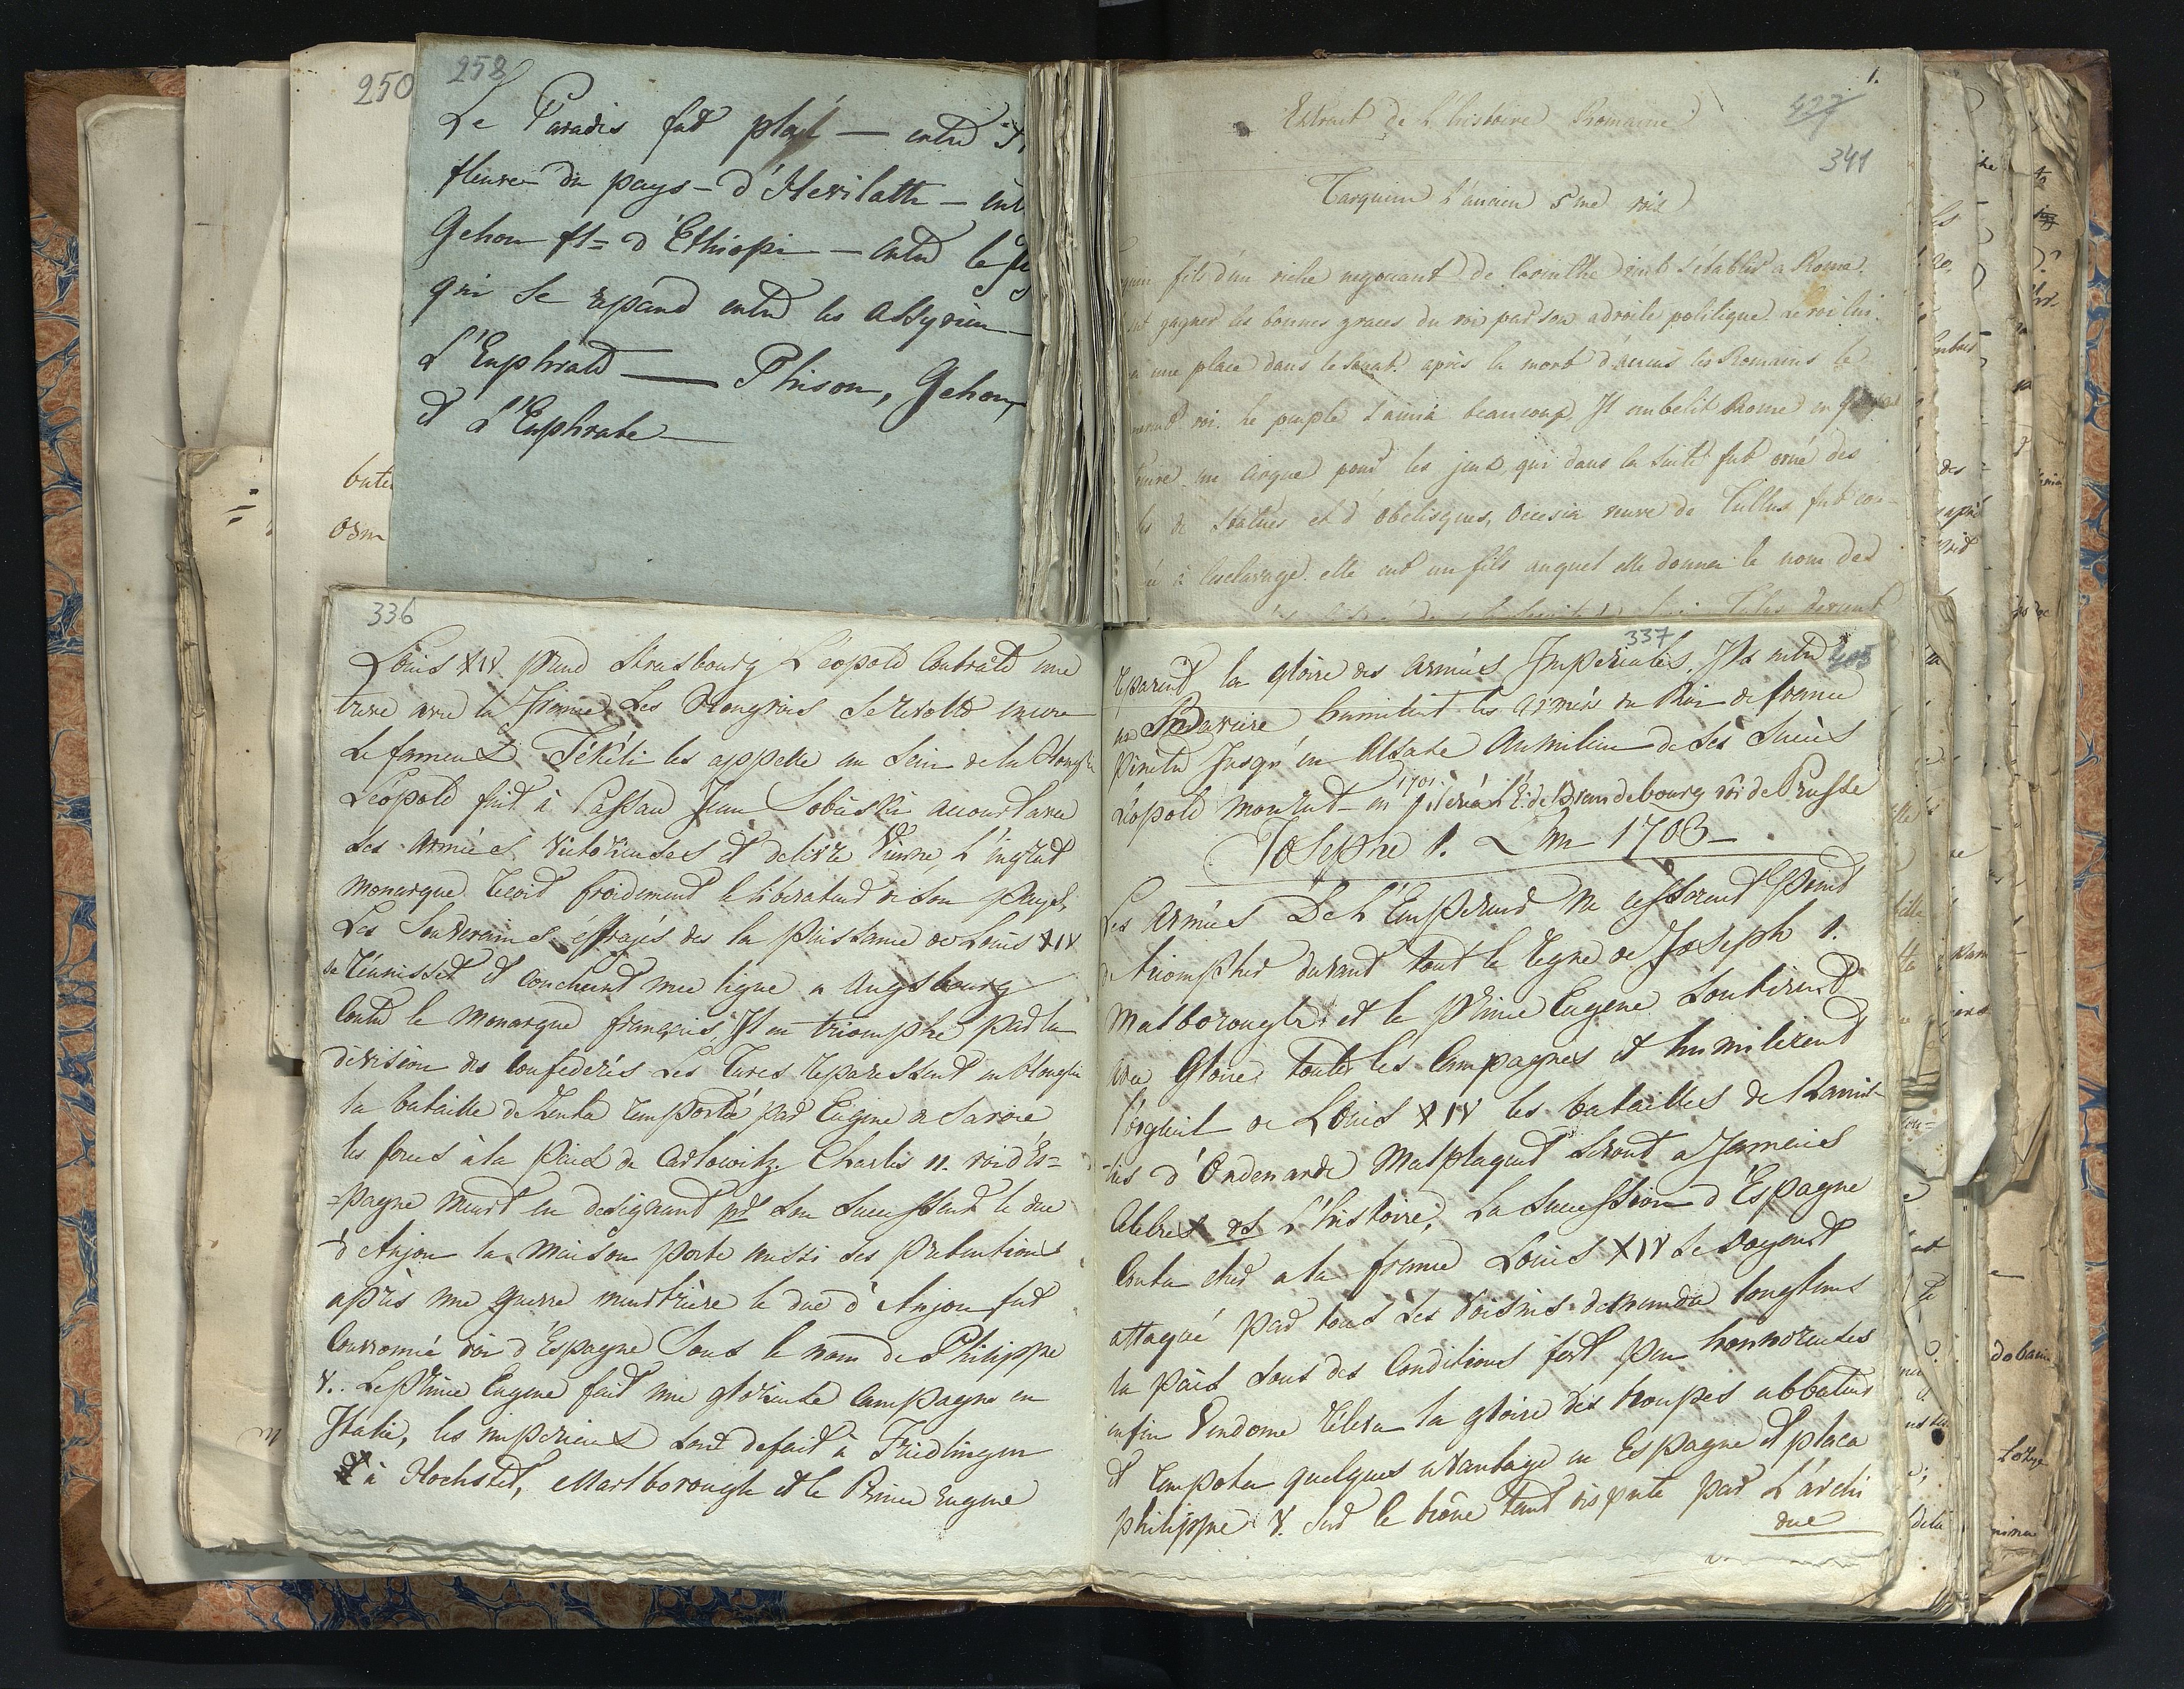 250
258
Le Paradis fut placé — entre
fleuve du pays - d'Hevilath —
Gehon fl= d'Ethiopie — entre le
qui se repand entre les Assyriens —
L'Euphrate — Phison, Gehon,
et L'Euphrate —
1.
Extrait de L'histoire Romaine
427
341
Tarquin L'ancien 5me roi
fils d'un riche negociant de Corinthe vint s'établir a Rome.
gagner les bonnes graces du roi par son adroite politique. Le roi lui
une place dans le Senat. après la mort d'Ancus les Romains le
roi. Le peuple l'aima beaucoup. Il embelit Rome en
un cirque pour les jeux, qui dans la suite fut orné des
de Statues et d'obelisques, Ocresia veuve de Tullus fut con-
à l'esclavage. elle eut un fils auquel elle donna le nom des
336
Louis XIV. prend Strasbourg Léopold Contracte une
treve avec la France Les Hongrois se revolte encore
Le fameux Tékéli les appelle au Sein de la Hongrie
Léopold fuit à Passau Jean Sobieski accourt avec
Ses Armées Victorieuses et delivre Vienne, L'ingrat
monarque recoit froidement le liberateur de Son pays,
Les Souverains éffrayés des la puissance de Louis XIV
se réunisset et concluent une ligne a Augsbourg
Contre le Monarque français, Il en triomphe par la
division des Confederés Les Turcs reparessent en Hongrie
la bataille de Zenta remportée par Eugene de Savoie
les force à la Paix de Carlowitz. Charles II. roi d'Es=
=pagne meurt en designant pr Son Successeur le duc
d'Anjou la maison porte aussi ses pretentions
après une guerre meurtrière le duc d'Anjou fut
Couronné roi d'Espagne Sous le nom de Philippe
V. Le Prince Eugene fait une glorieuse Campagne en
Italie, les imperieux Sont defait à Friedlingen
et à Hochstet, Marlborough et le Prince Eugene
337
405
reparent la gloire des armées Imperiales. Ils entre
en Baviere humilient les armées du Roi de france
Pénetre Jusqu'en Alsace Au milieu de Ses Succès
Léopold mourut - en 1701 il créa l'E: de Brandebourg roi de Prusse
Joseph 1. L'an 1705 -
Les armées De L'Empereur ne cesserent point
de triompher durant tout le regne de Joseph 1.
Malborough et le Prince Eugene Soutirent
avec Gloire toutes les Campagnes et humilierent
l'orgueil de Louis XIV les batailles de Ramil-
-lies d'Oudenarde Malplaquet Seront a Jamais
Celebres ds L'histoire, La Succession d'Espagne
Couta cher a la france Louis XIV Se voyant
attaqué par tous Ses Voisins demanda longtems
la paix Sous des Conditions fort peu honnoreuses
enfin Vendome releva la gloire des troupes abbatues
et remporta quelques avantage en Espagne et placa
Philippe V. Sur le trône tant disputé par L'archi
duc